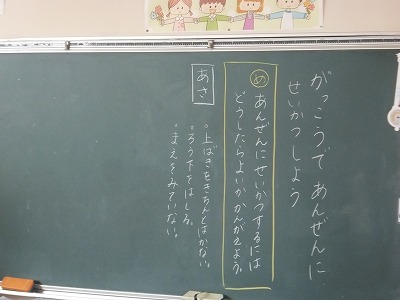 がっこうで あんぜんに
せいかつしよう
め あんぜんにせいかつするには
どうしたらよいかかんがえよう。
あさ
。上ばきをきちんとはかない。
。ろう下をはしる。
。まえをみていない。